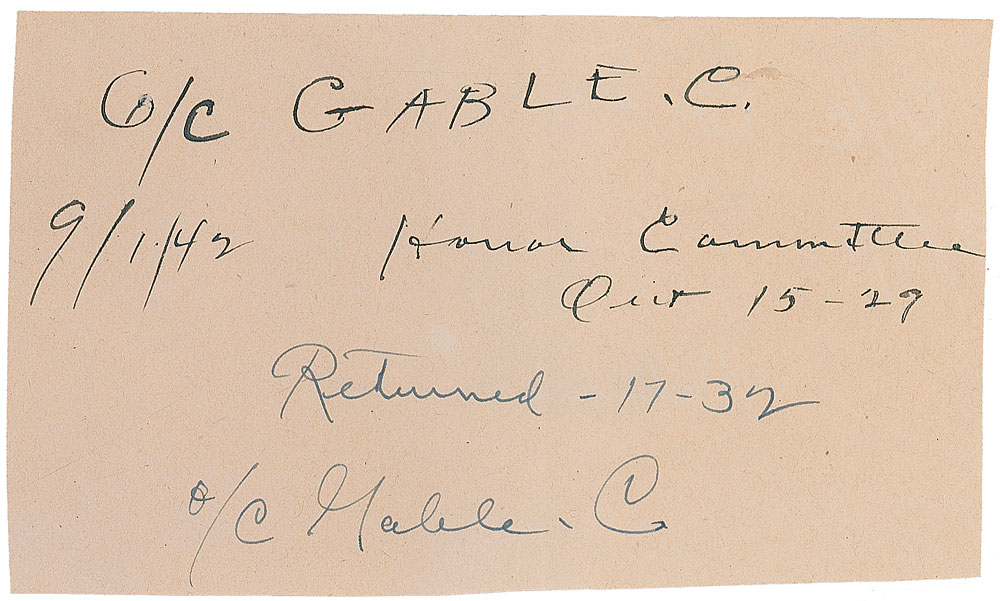 O/C GABLE. C.
9/1/42 Honor Committee
Out 15-29
Returned - 17-32
o/c Gable. C